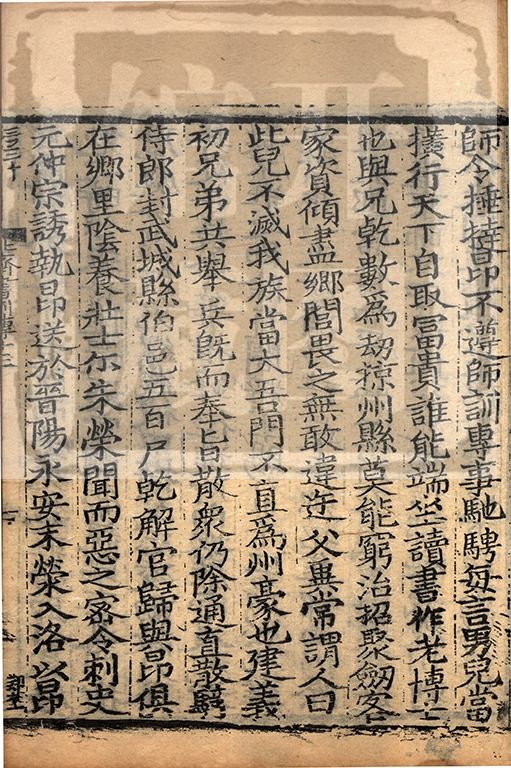 師令捶撻昂不遵師訓專事馳騁每言男兒當
橫行天下自取冨貴誰能端坐讀書作老博士
也與兄乾數爲刼掠州縣莫能窮治招聚劒客
家資傾盡鄉閭畏之無敢違迕父翼常謂人曰
此兒不滅我族當大吾門不直爲州豪也建義
初兄弟共舉兵旣而奉旨散衆仍除通直散騎
侍郎封武城縣伯邑五百戸乾解官歸與昂俱
在鄉里陰養壯士尒朱榮聞而惡之宻令刺史
元仲宗誘執昂送於晉陽永安末榮入洛以昂